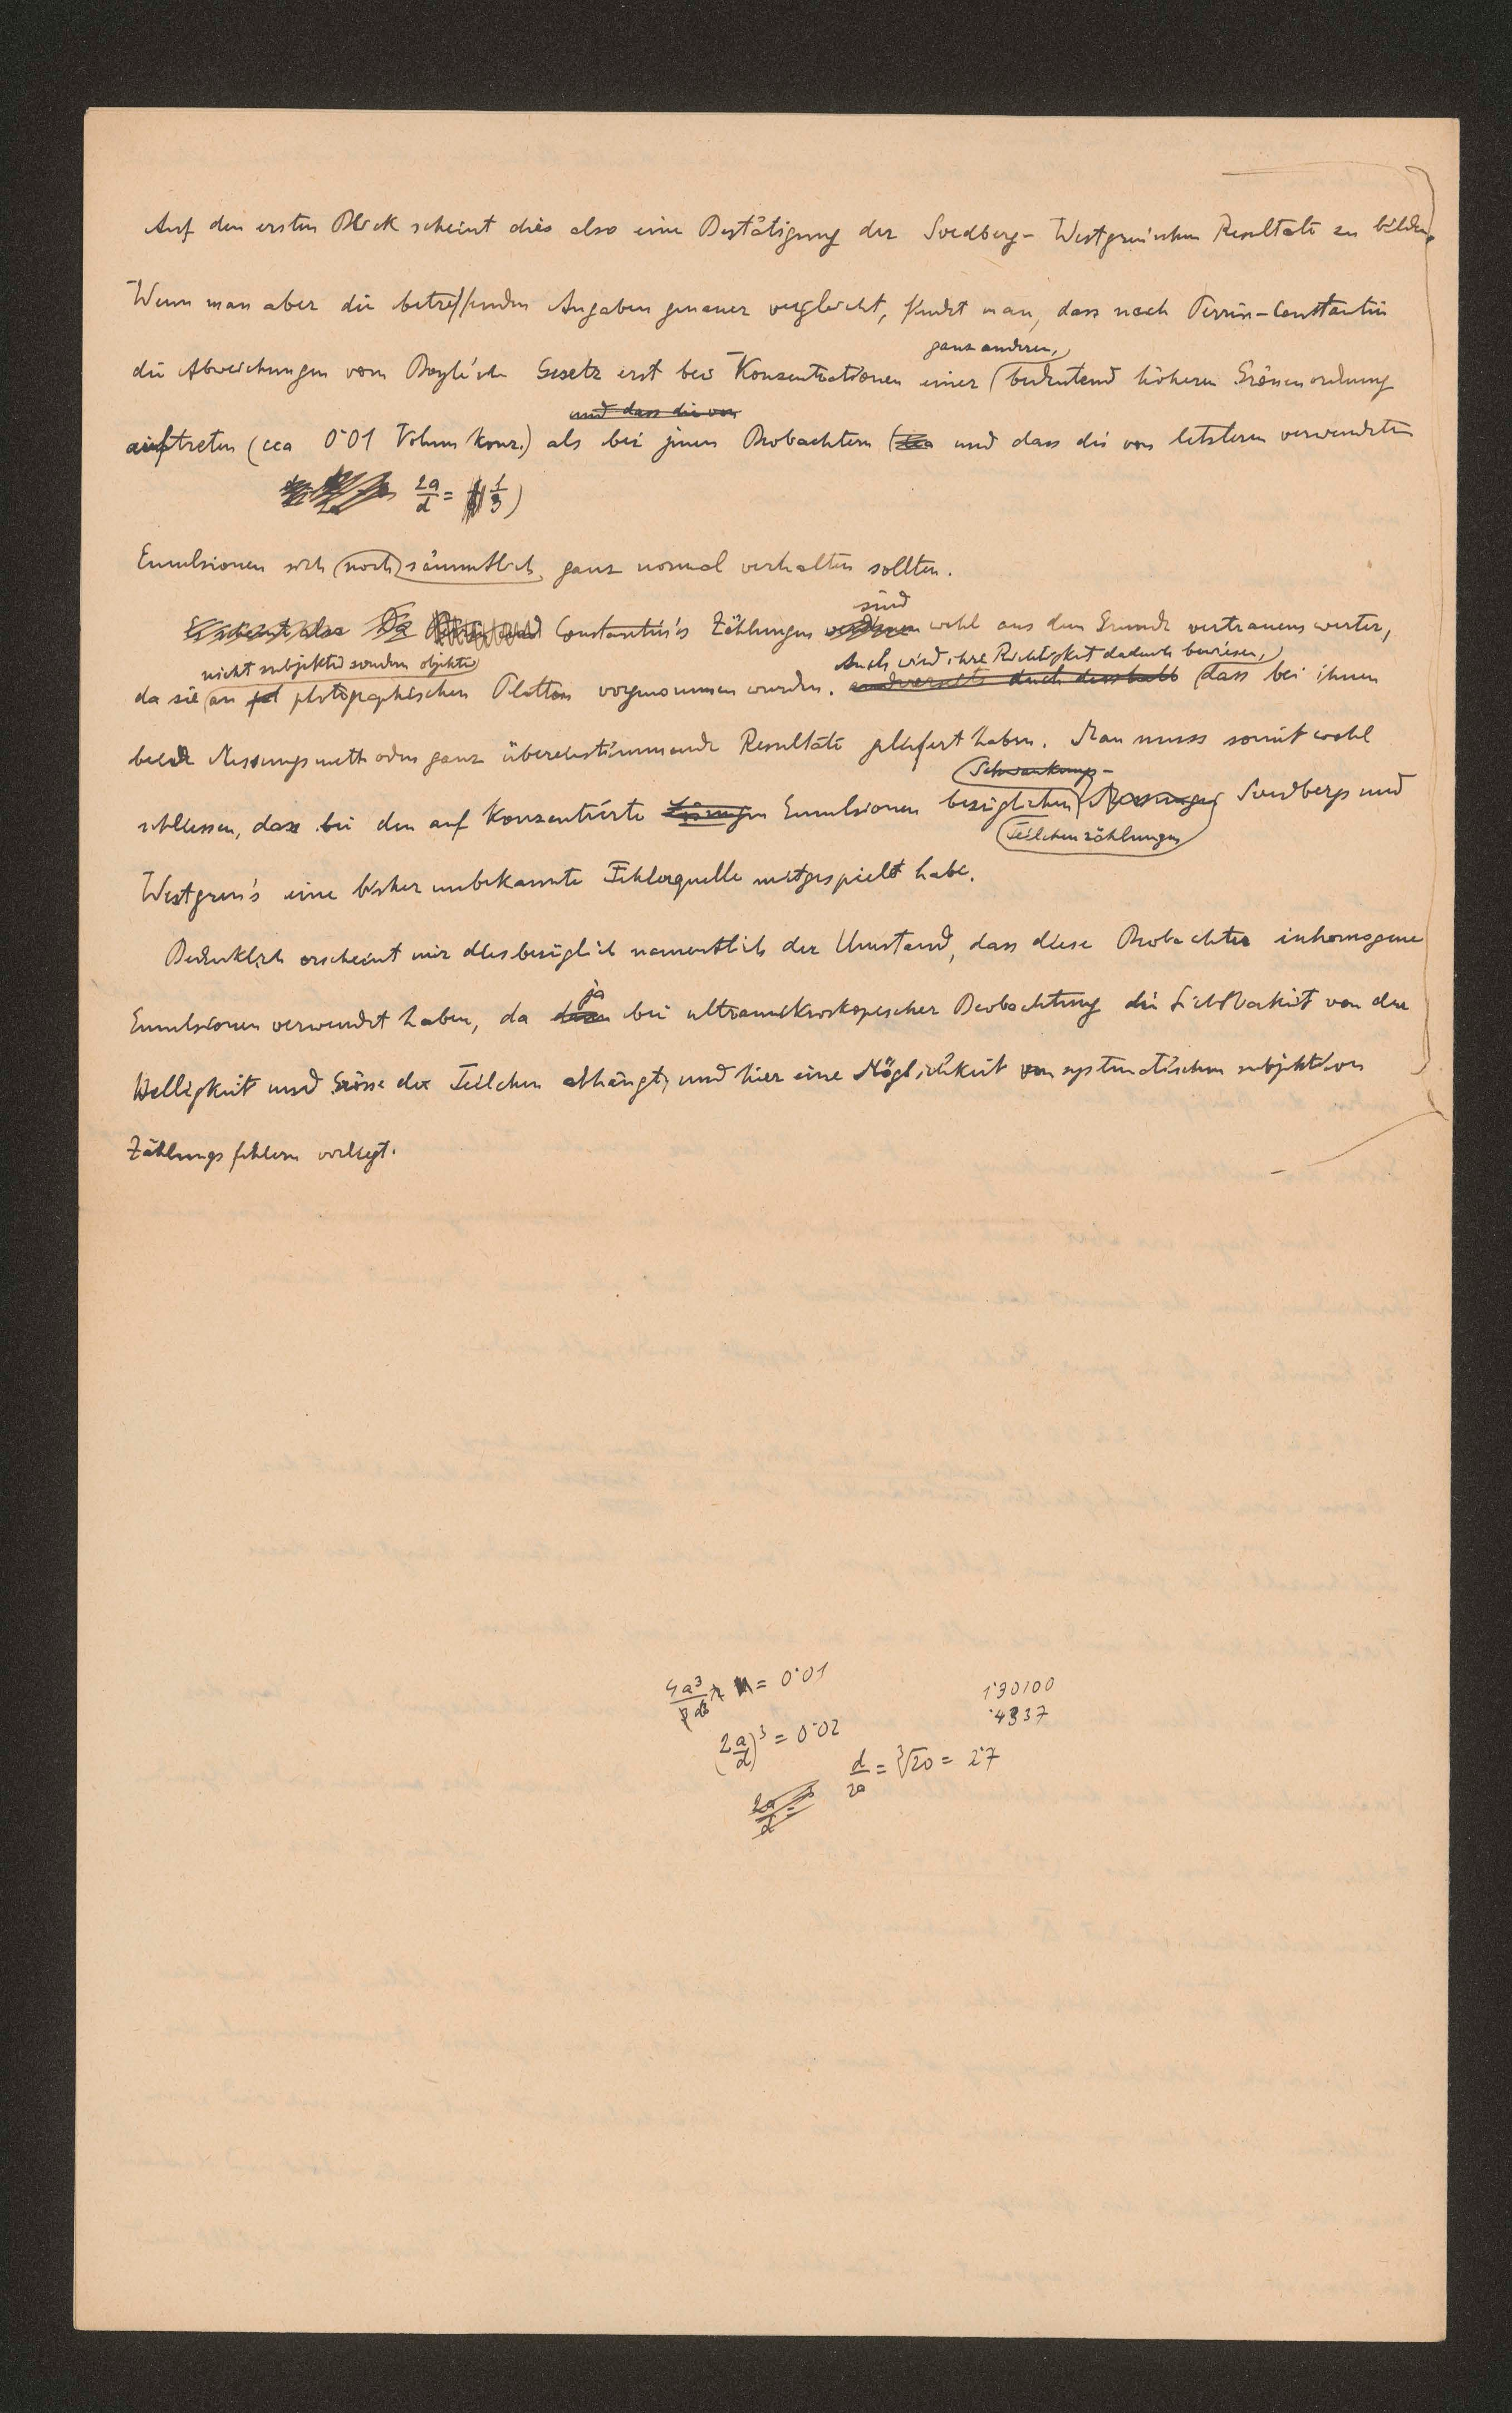 Auf den ersten Blick scheint dies also eine Bestätigung der Svedberg-Westgren'schen Resultate zu bilden.
Wenn man aber die betreffenden Angaben genauer vergleicht, findet man, dass nach Perrin-Constantin
ganz anderen,
die Abweichungen vom Boyle'schen Gesetz erst bei Konzentrationen einer bedeutend höheren Grössenordnung
und dass die von
auftreten (cca 0·01 Volum Konz.) als bei jenen Beobachtern und dass die von letzteren verwendeten
2a/d = 1/3)
Emulsionen sich noch sämmtlich ganz normal verhalten sollten.
sind
Es scheint also Da Constantin's Zählungen wohl aus dem Grunde vertrauenswerter,
nicht subjektiv sondern objektiv
Auch wird ihre Richtigkeit dadurch bewiesen,
da sie an photographischen Platten vorgenommen wurden. andererseits auch desshalb dass bei ihnen
beide Messungsmethoden ganz übereinstimmende Resultate geliefert haben. Man muss somit wohl
Schwankungs-
schliessen, dass bei den auf konzentrierte Lösungen Emulsionen bezüglichen Messungen Svedbergs und
Teilchenzählungen
Westgren's eine bisher unbekannte Fehlerquelle mitgespielt habe.
Bedenklich erscheint mir diesbezüglich namentlich der Umstand, dass diese Beobachter inhomogene
ja
Emulsionen verwendet haben, da bei ultramikroskopischer Beobachtung die Sichtbarkeit von der
Helligkeit und Grösse der Teilchen abhängt, und hier eine Möglichkeit von systematischen subjektiven
Zählungsfehlern vorliegt.
4a³/3d³ π = 0·01
1·30100
·4337
(2a/d)³ = 0·02
d/2a = ³√20 = 2·7
2a/d =